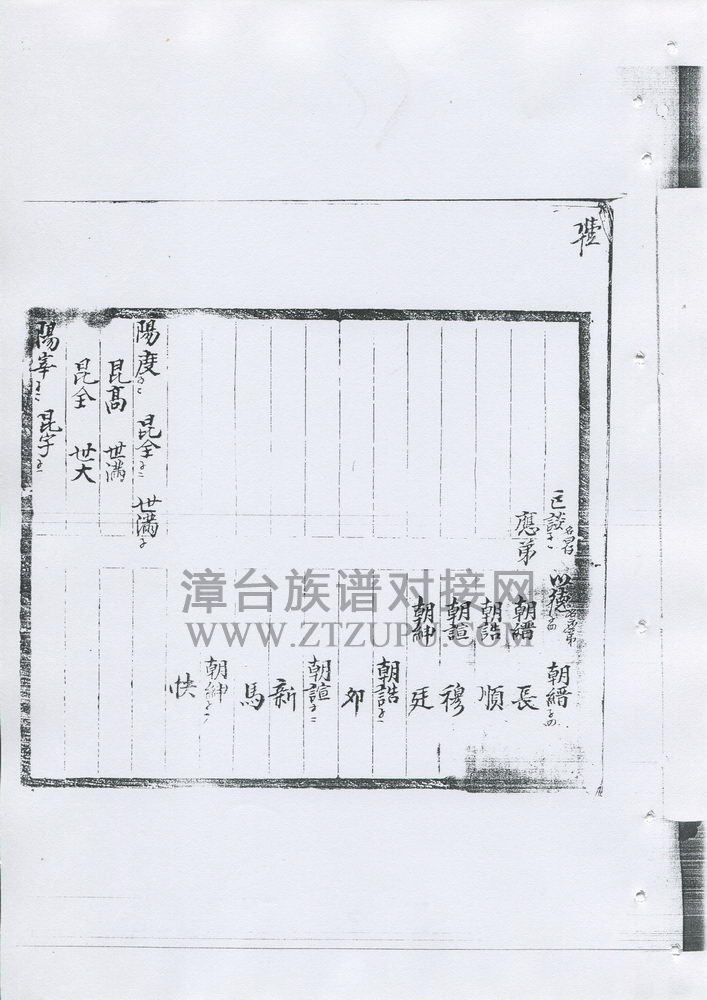 朝縉
以德
長
朝縉
應弟
順
朝誥
穆
朝諠
廷
朝紳
卯
朝誥
新
朝諠
馬
朝紳
快
陽度 昆全 世滿
昆高 世滿
昆全 世大
陽宰 昆宇
漳台族谱对接网
WWW.ZTZUPU.COM